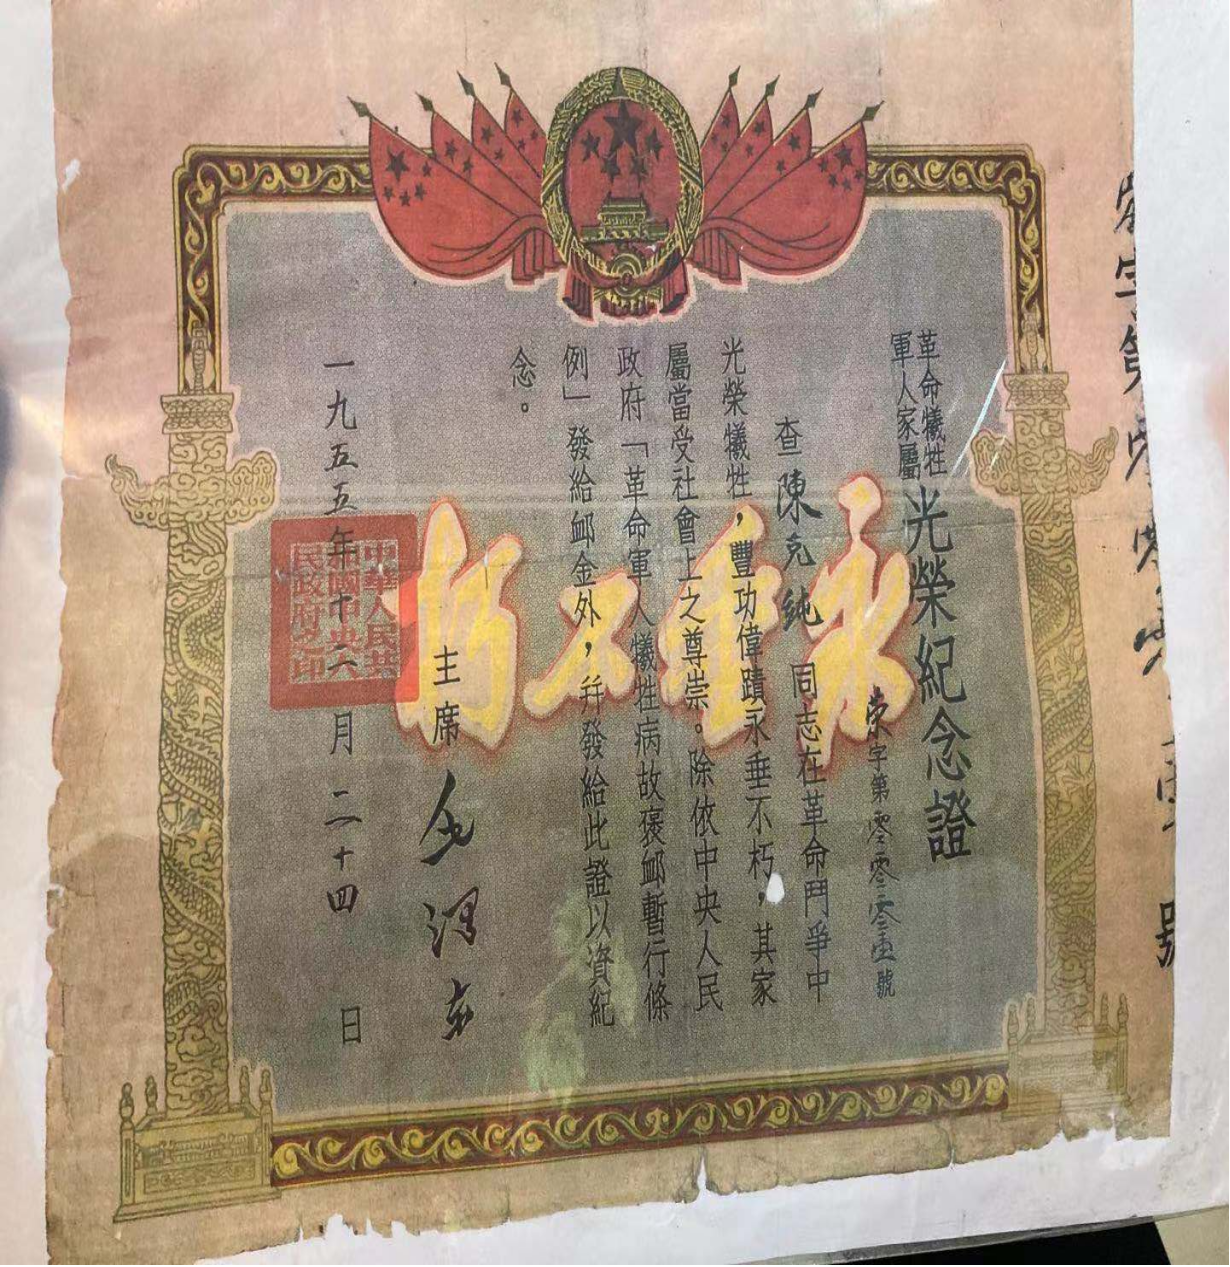 革命犧牲
軍人家屬
光榮紀念證
荣字第零零零壹號
查陳克純同志在革命鬥爭中
光榮犧牲，豐功偉蹟永垂不朽，其家
屬當受社會上之尊崇。除依中央人民
政府「革命軍人犧牲病故褒卹暫行條
例」發給卹金外，并發給此證以資紀
念。
主席 毛澤东
一九五五年十二月二十四日
永垂不朽
中華人民共
和國中央人
民政府之印